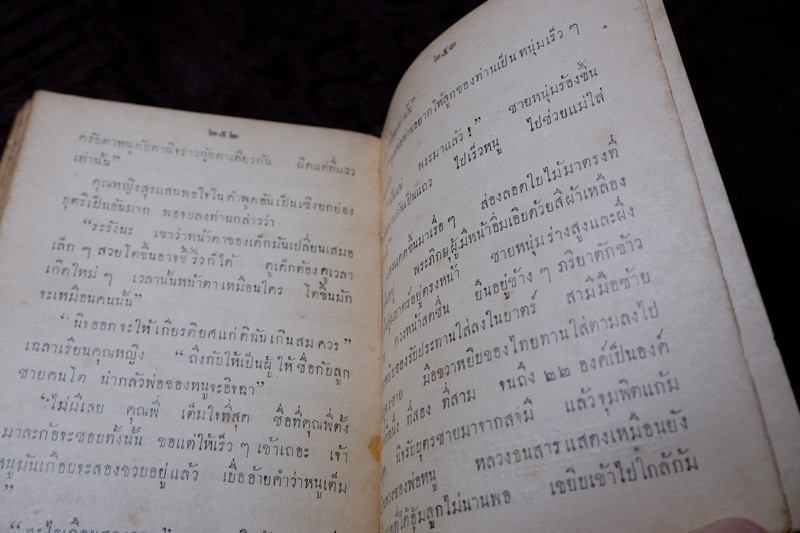 ๒๕๒
ครับตาหนูกับตานิจราวกับตาเดียวกัน ผิดแต่ที่แวว
เท่านั้น”
คุณหญิงสุรแสนพอใจในคำพูดอันเป็นเชิงยกย่อง
ยุตรีเป็นอันมาก พอจบลงท่านกล่าวว่า
“ระวังนะ เขาว่าหน้าตาของเด็กมันเปลี่ยนเสมอ
เล็ก ๆ สวยโตขึ้นอาจขี้ริ้วก็ได้ ดูเด็กต้องดูเวลา
เกิดใหม่ ๆ เวลานั้นหน้าตาเหมือนใคร โตขึ้นมัก
จะเหมือนคนนั้น”
“นิจออกจะให้เกียรติยศแก่ดิฉันเกินสมควร”
เฉลาเรียนคุณหญิง “ถึงกับให้เป็นผู้ให้ชื่อกับลูก
ชายคนโต น่ากลัวพ่อของหนูจะอิจฉา”
“ไม่มีเลย คุณพี่ เต็มใจที่สุด ชื่อที่คุณพี่ตั้ง
มาละก้อจะชอบทั้งนั้น ขอแต่ให้เร็ว ๆ เข้าเถอะ เจ้า
หนูมันเกือบจะสองขวบอยู่แล้ว เบื่ออ้ายคำว่าหนูเต็ม
”
๒๕๓
อยากให้ลูกของท่านเป็นหนุ่มเร็ว ๆ
พระมาแล้ว!” ชายหนุ่มร้องขึ้น
เป็นแถว ไปเร็วหนู ไปช่วยแม่ใส่
แดดขึ้นมาเรื่อ ๆ ส่องลอดใบไม้มาตรงที่
พระภิกษุผู้มีหน้าอิ่มเอิบด้วยสีผ้าเหลือง
อยู่ตรงหน้า ชายหนุ่มร่างสูงและผึ่ง
ดวงหน้าสดชื่น ยืนอยู่ข้าง ๆ ภริยาตักข้าว
ของรับประทานใส่ลงในบาตร์ สามีมือซ้าย
มือขวาหยิบของไทยทานใส่ตามลงไป
ที่สอง ที่สาม จนถึง ๒๒ องค์เป็นองค์
นิจรับบุตรชายมาจากสามี แล้วจุมพิตแก้ม
ของพ่อหนู หลวงธนสารแสดงเหมือนยัง
ที่ได้อุ้มลูกไม่นานพอ เขยิบเข้าไปใกล้ก้ม